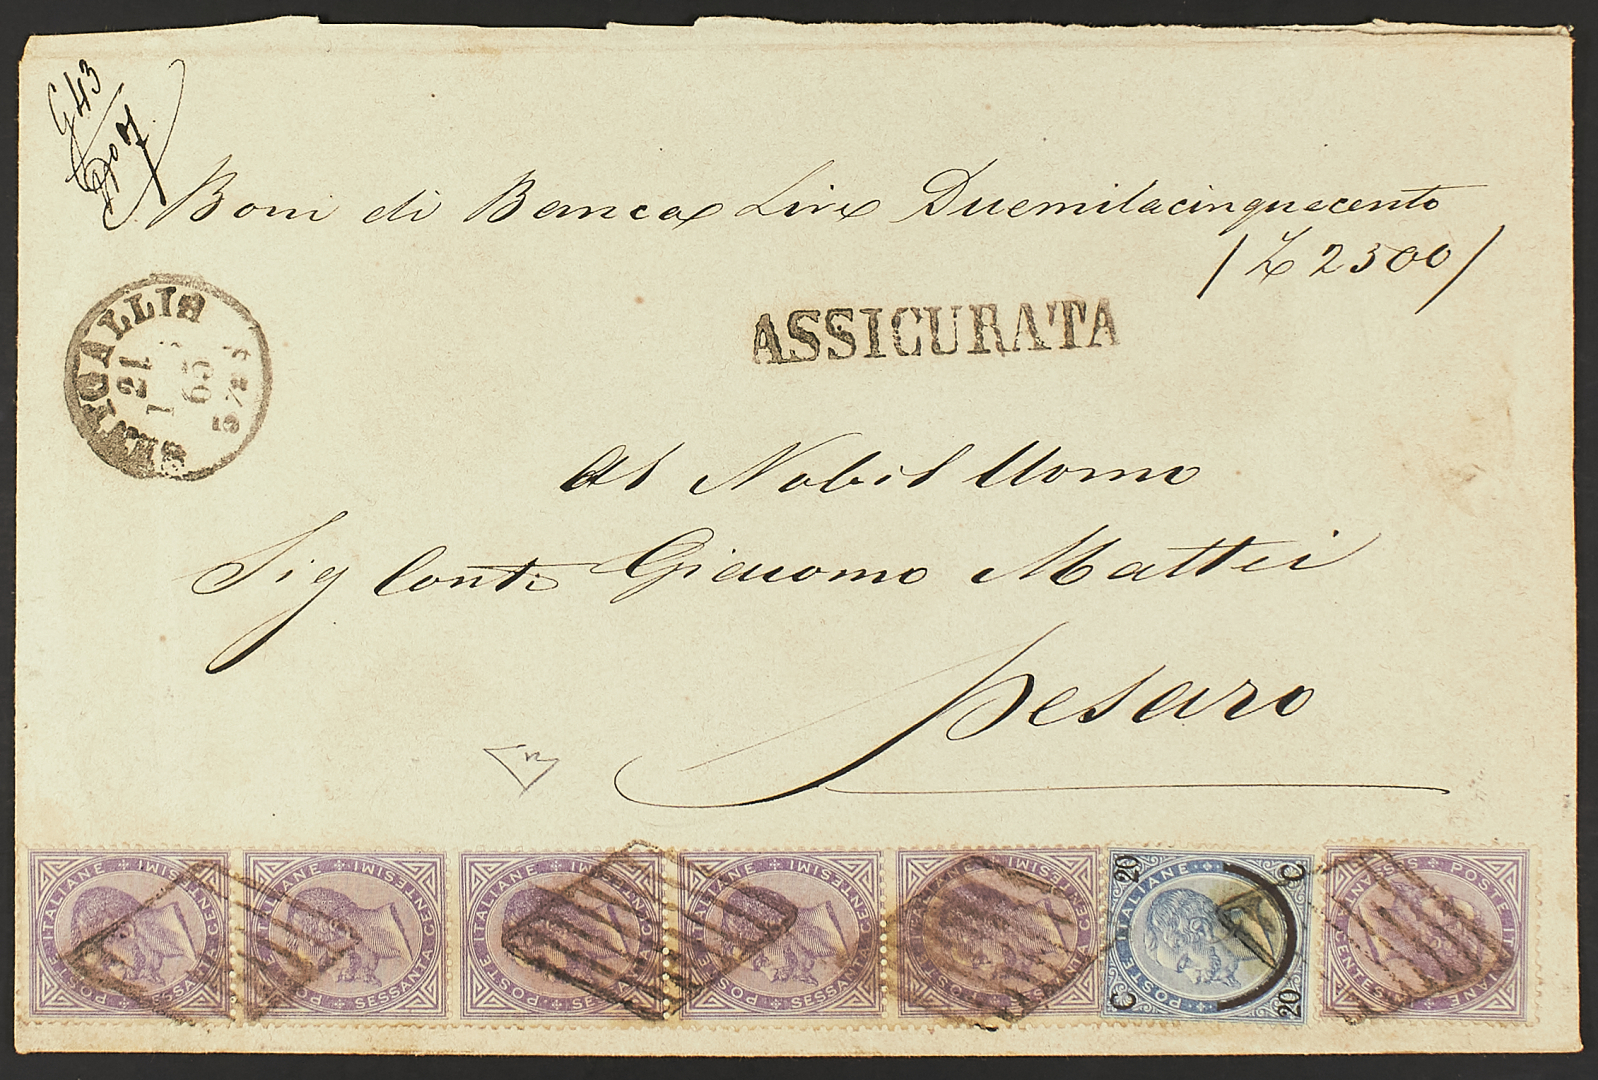 G 43
N° 7
Boni di Banca Lire Duemilacinquecento
/ £ 2500 /
SENIGALLIA
21
1
65
ASSICURATA
Al Nobil Uomo
Sig Conte Giacomo Mattei
Pesaro
POSTE ITALIANE CENTESIMI SESSANTA
POSTE ITALIANE CENTESIMI SESSANTA
POSTE ITALIANE CENTESIMI SESSANTA
POSTE ITALIANE CENTESIMI SESSANTA
POSTE ITALIANE CENTESIMI SESSANTA
C 20 POSTE ITALIANE 20 C
POSTE ITALIANE CENTESIMI SESSANTA